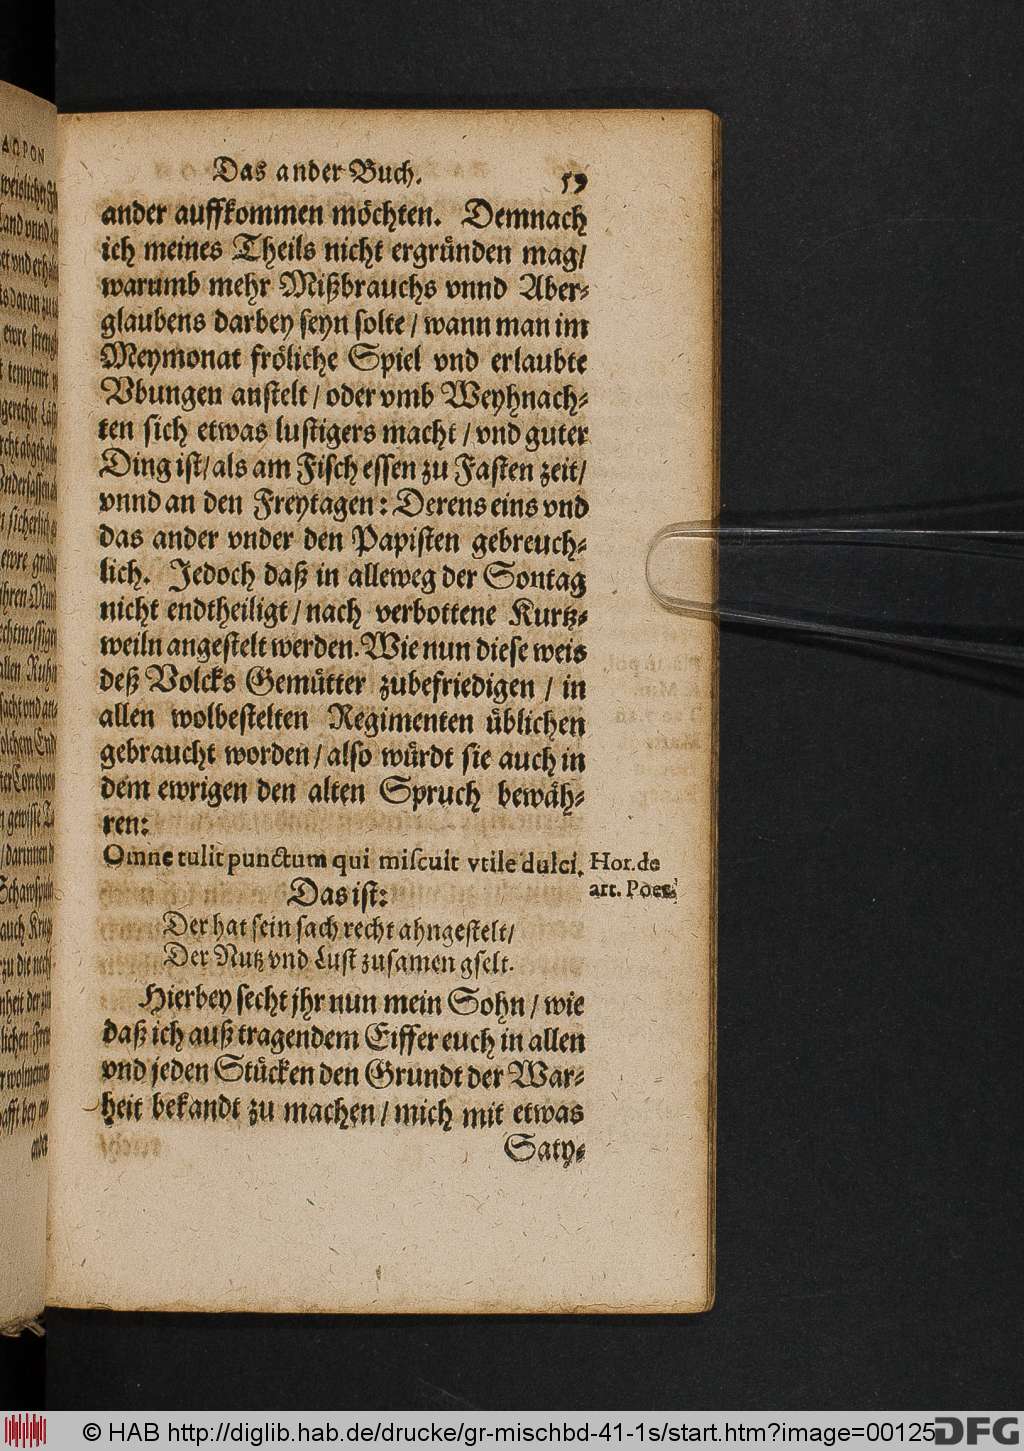 Das ander Buch. 59
ander auffkommen möchten. Demnach
ich meines Theils nicht ergründen mag/
warumb mehr Mißbrauchs vnnd Aber-
glaubens darbey seyn solte / wann man im
Meymonat fröliche Spiel vnd erlaubte
Vbungen anstelt / oder vmb Weyhnach-
ten sich etwas lustigers macht / vnd guter
Ding ist/ als am Fisch essen zu Fasten zeit/
vnnd an den Freytagen: Derens eins vnd
das ander vnder den Papisten gebreuch-
lich. Jedoch daß in alleweg der Sontag
nicht endtheiligt / nach verbottene Kurtz-
weiln angestelt werden. Wie nun diese weis
deß Volcks Gemütter zubefriedigen / in
allen wolbestelten Regimenten üblichen
gebraucht worden / also würdt sie auch in
dem ewrigen den alten Spruch bewäh-
ren:
Omne tulit punctum qui miscuit vtile dulci. Hor. de
art. Poet.
Das ist:
Der hat sein sach recht ahngestelt/
Der Nutz vnd Lust zusamen gselt.
Hierbey secht jhr nun mein Sohn / wie
daß ich auß tragendem Eiffer euch in allen
vnd jeden Stücken den Grundt der War-
heit bekandt zu machen / mich mit etwas
Saty-
© HAB http://diglib.hab.de/drucke/gr-mischbd-41-1s/start.htm?image=00125
DFG